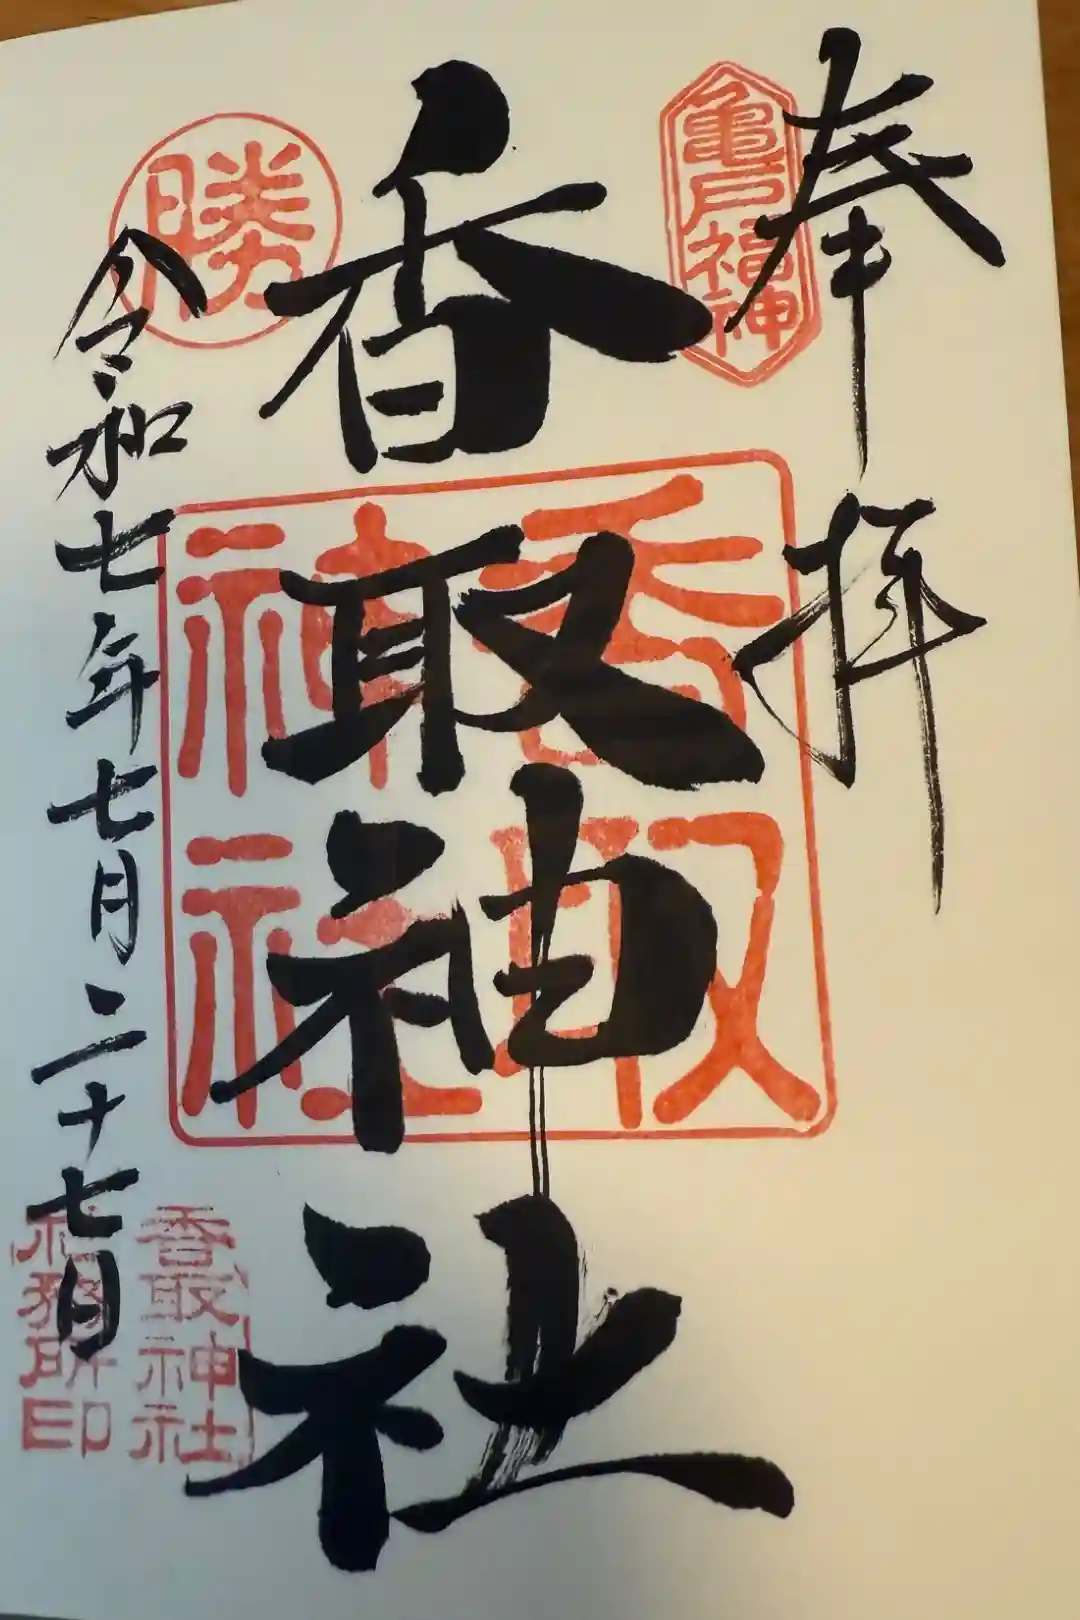 奉拝
亀戸福神
香取神社
香取神社
勝
令和七年七月二十七日
香取神社
社務所印